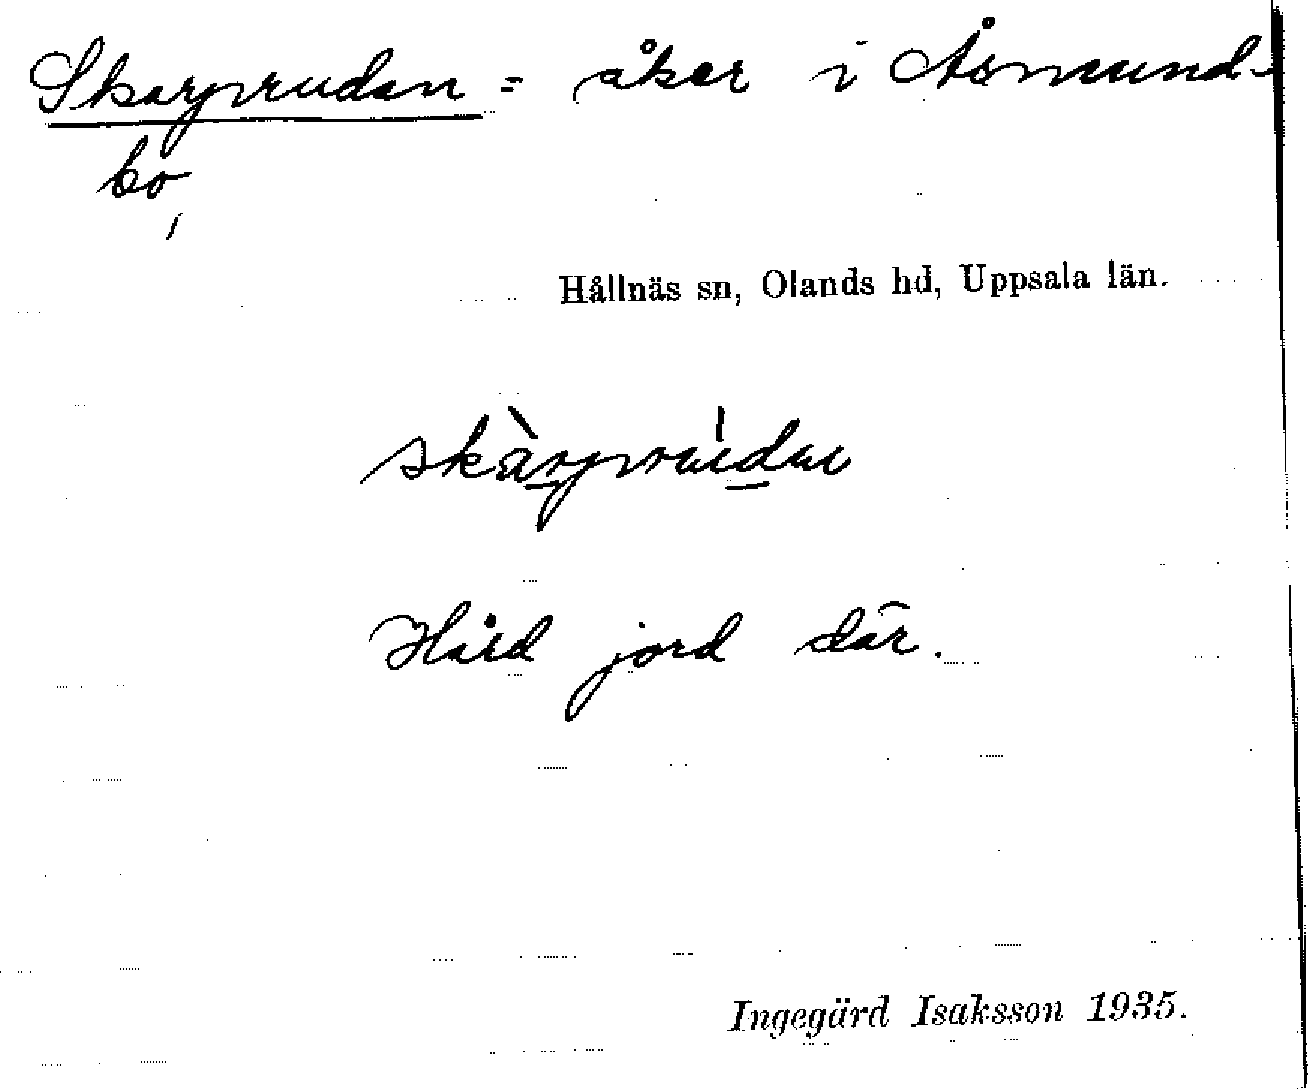 Skarprudan = åker i Åsmund-
bo,
Hållnäs sn, Olands hd, Uppsala län.
skàrprúdan
Hård jord där.
Ingegärd Isaksson 1935.